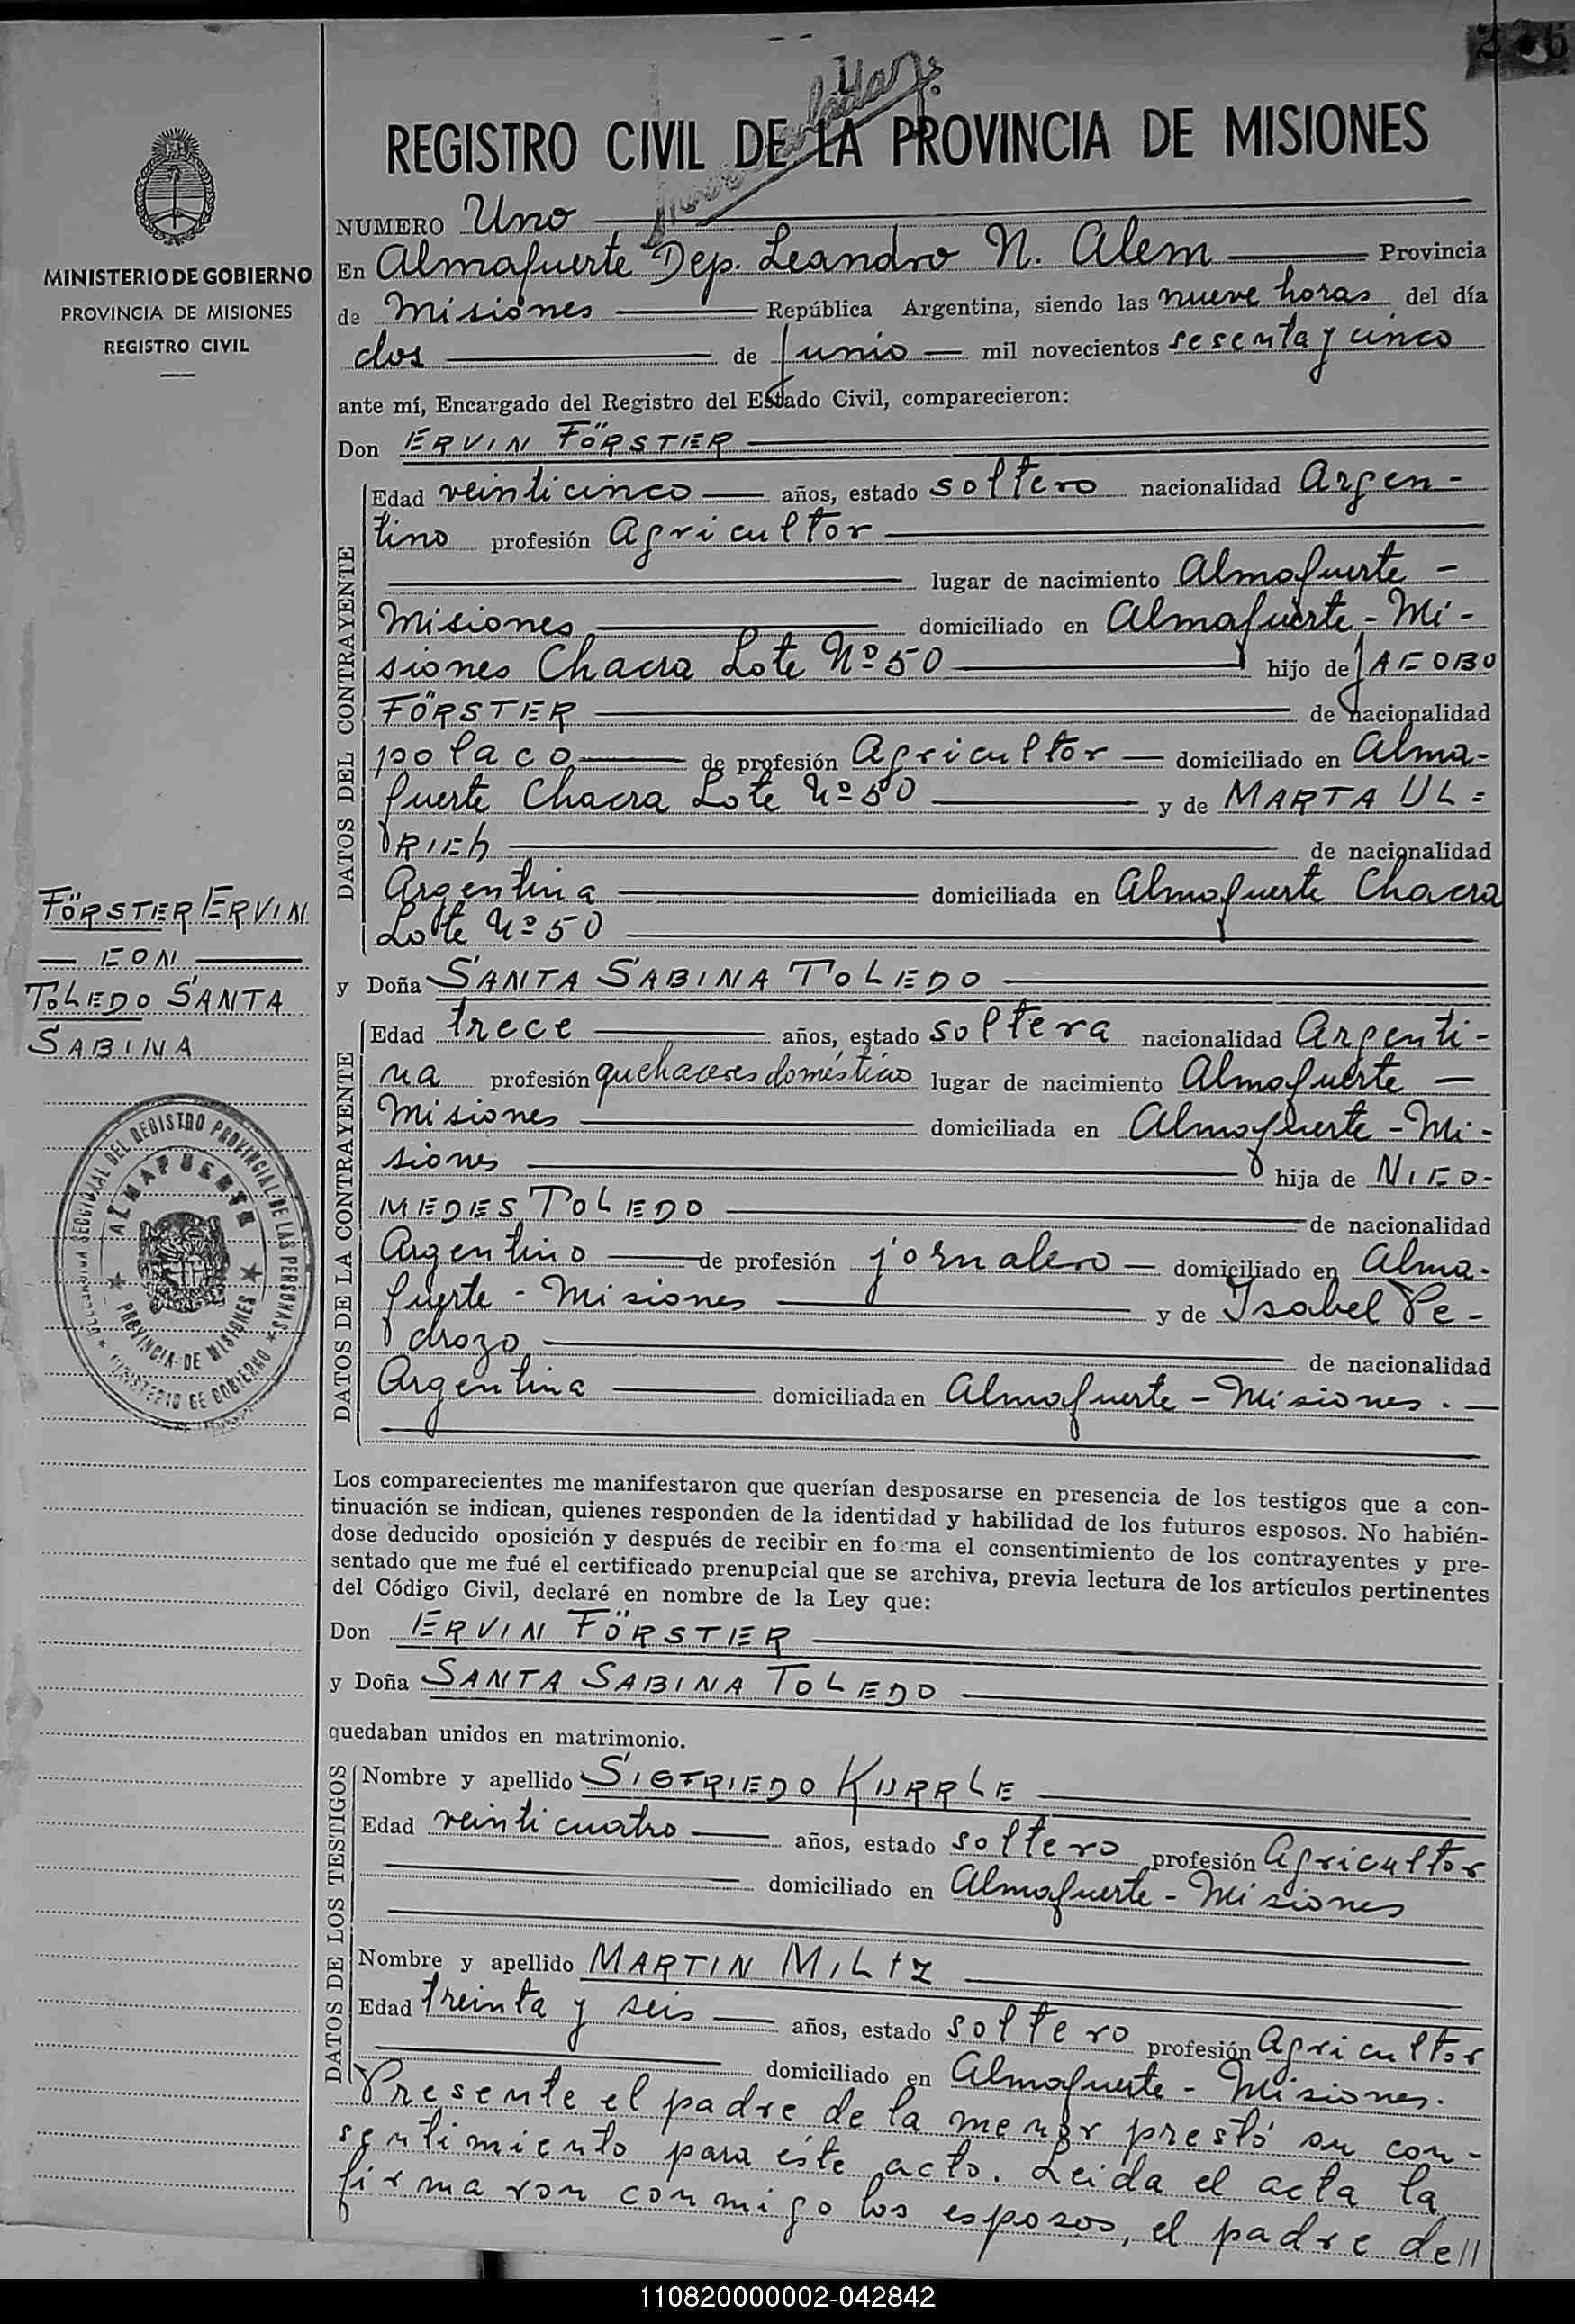 REGISTRO CIVIL DE LA PROVINCIA DE MISIONES
MINISTERIO DE GOBIERNO
PROVINCIA DE MISIONES
REGISTRO CIVIL
NUMERO Uno
En Almafuerte Dep. Leandro N. Alem Provincia
de Misiones República Argentina, siendo las nueve horas del día
dos de Junio mil novecientos sesenta y cinco
ante mí, Encargado del Registro del Estado Civil, comparecieron:
Don ERVIN FÖRSTER
DATOS DEL CONTRAYENTE
Edad veinticinco años, estado soltero nacionalidad Argen-
tino profesión Agricultor
lugar de nacimiento Almafuerte -
Misiones domiciliado en Almafuerte - Mi-
siones Chacra Lote Nº 50 hijo de JACOBO
FÖRSTER de nacionalidad
polaco de profesión Agricultor domiciliado en Alma-
fuerte Chacra Lote Nº 50 y de MARTA UL=
RICh de nacionalidad
Argentina domiciliada en Almafuerte Chacra
Lote Nº 50
FÖRSTER ERVIN
CON
TOLEDO SANTA
SABINA
y Doña SANTA SABINA TOLEDO
DATOS DE LA CONTRAYENTE
Edad trece años, estado soltera nacionalidad Argenti-
na profesión quehaceres domésticos lugar de nacimiento Almafuerte -
Misiones domiciliada en Almafuerte - Mi-
siones hija de NICO-
MEDES TOLEDO de nacionalidad
Argentino de profesión jornalero domiciliado en Alma-
fuerte - Misiones y de Isabel Pe-
drozo de nacionalidad
Argentina domiciliada en Almafuerte - Misiones.
SECCIONAL DEL REGISTRO PROVINCIAL DE LAS PERSONAS
ALMAFUERTE
PROVINCIA DE MISIONES
MINISTERIO DE GOBIERNO
Los comparecientes me manifestaron que querían desposarse en presencia de los testigos que a con-
tinuación se indican, quienes responden de la identidad y habilidad de los futuros esposos. No habién-
dose deducido oposición y después de recibir en forma el consentimiento de los contrayentes y pre-
sentado que me fué el certificado prenupcial que se archiva, previa lectura de los artículos pertinentes
del Código Civil, declaré en nombre de la Ley que:
Don ERVIN FÖRSTER
y Doña SANTA SABINA TOLEDO
quedaban unidos en matrimonio.
DATOS DE LOS TESTIGOS
Nombre y apellido SIGFRIEDO KURRLE
Edad veinticuatro años, estado soltero profesión Agricultor
domiciliado en Almafuerte - Misiones
Nombre y apellido MARTIN MILTZ
Edad treinta y seis años, estado soltero profesión Agricultor
domiciliado en Almafuerte - Misiones.
Presente el padre de la menor prestó su con-
sentimiento para éste acto. Leida el acta la
firmaron conmigo los esposos, el padre de//
110820000002-042842